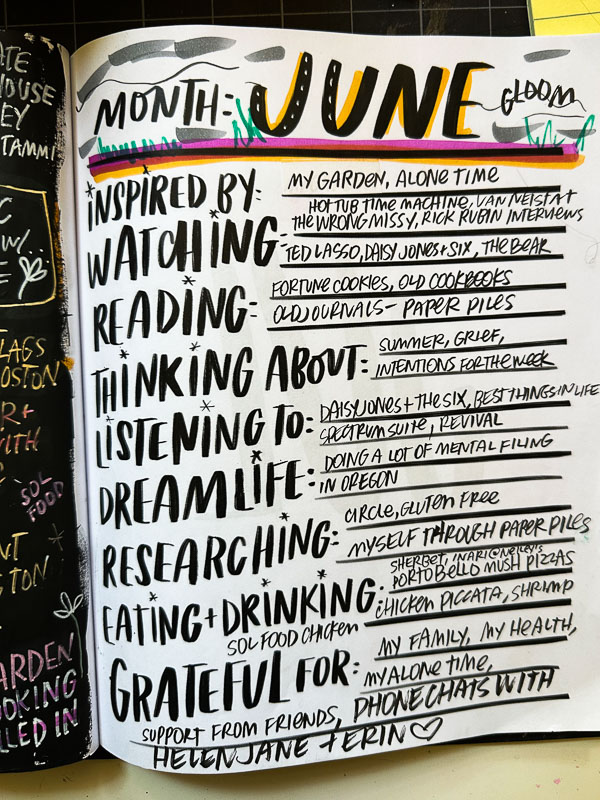 ATE
HOUSE
EY
TAMMI
C
W/..
E
LAGS
OSTON
R+
WITH
SOL
FOOD
NT
GTON
ARDEN
OOKING
LLED IN
MONTH: JUNE GLOOM
INSPIRED BY: MY GARDEN, ALONE TIME
HOT TUB TIME MACHINE, VAN NEISTAT
THE WRONG MISSY, RICK RUBIN INTERVIEWS
WATCHING: TED LASSO, DAISY JONES + SIX, THE BEAR
FORTUNE COOKIES, OLD COOKBOOKS
READING: OLD JOURNALS - PAPER PILES
SUMMER, GRIEF,
THINKING ABOUT: INTENTIONS FOR THE WEEK
DAISY JONES + THE SIX, BEST THINGS IN LIFE
LISTENING TO: SPECTRUM SUITE, REVIVAL
DOING A LOT OF MENTAL FILING
DREAM LIFE: IN OREGON
CIRCLE, GLUTEN FREE
RESEARCHING: MYSELF THROUGH PAPER PILES
SHERBET, INARI @ NEILEY'S
PORTOBELLO MUSH PIZZAS
EATING + DRINKING: CHICKEN PICCATA, SHRIMP
SOL FOOD CHICKEN
MY FAMILY, MY HEALTH,
GRATEFUL FOR: MY ALONE TIME,
SUPPORT FROM FRIENDS, PHONE CHATS WITH
HELEN JANE + ERIN